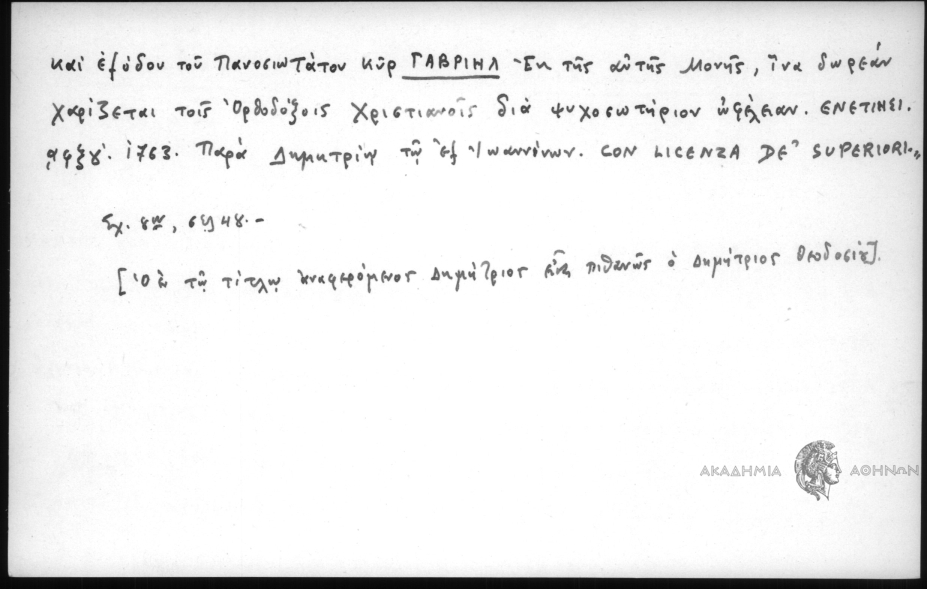 καὶ ἐξόδου τοῦ Πανοσιωτάτου Κὺρ ΓΑΒΡΙΗΛ Ἐκ τῆς αὐτῆς Μονῆς, ἵνα δωρεάν
χαρίζεται τοῖς Ὀρθοδόξοις Χριστιανοῖς διὰ ψυχοσωτήριον ὠφέλειαν. ΕΝΕΤΙΗΣΙ.
͵αψξγ΄. 1763. Παρὰ Δημητρίῳ τῷ ἐξ Ἰωαννίνων. CON LICENZA DE' SUPERIORI.»
Σχ. 8ον, σελ 48.-
[Ὁ ἐν τῷ τίτλῳ ἀναφερόμενος Δημήτριος εἶναι πιθανῶς ὁ Δημήτριος Θεοδοσίου].
ΑΚΑΔΗΜΙΑ ΑΘΗΝΩΝ